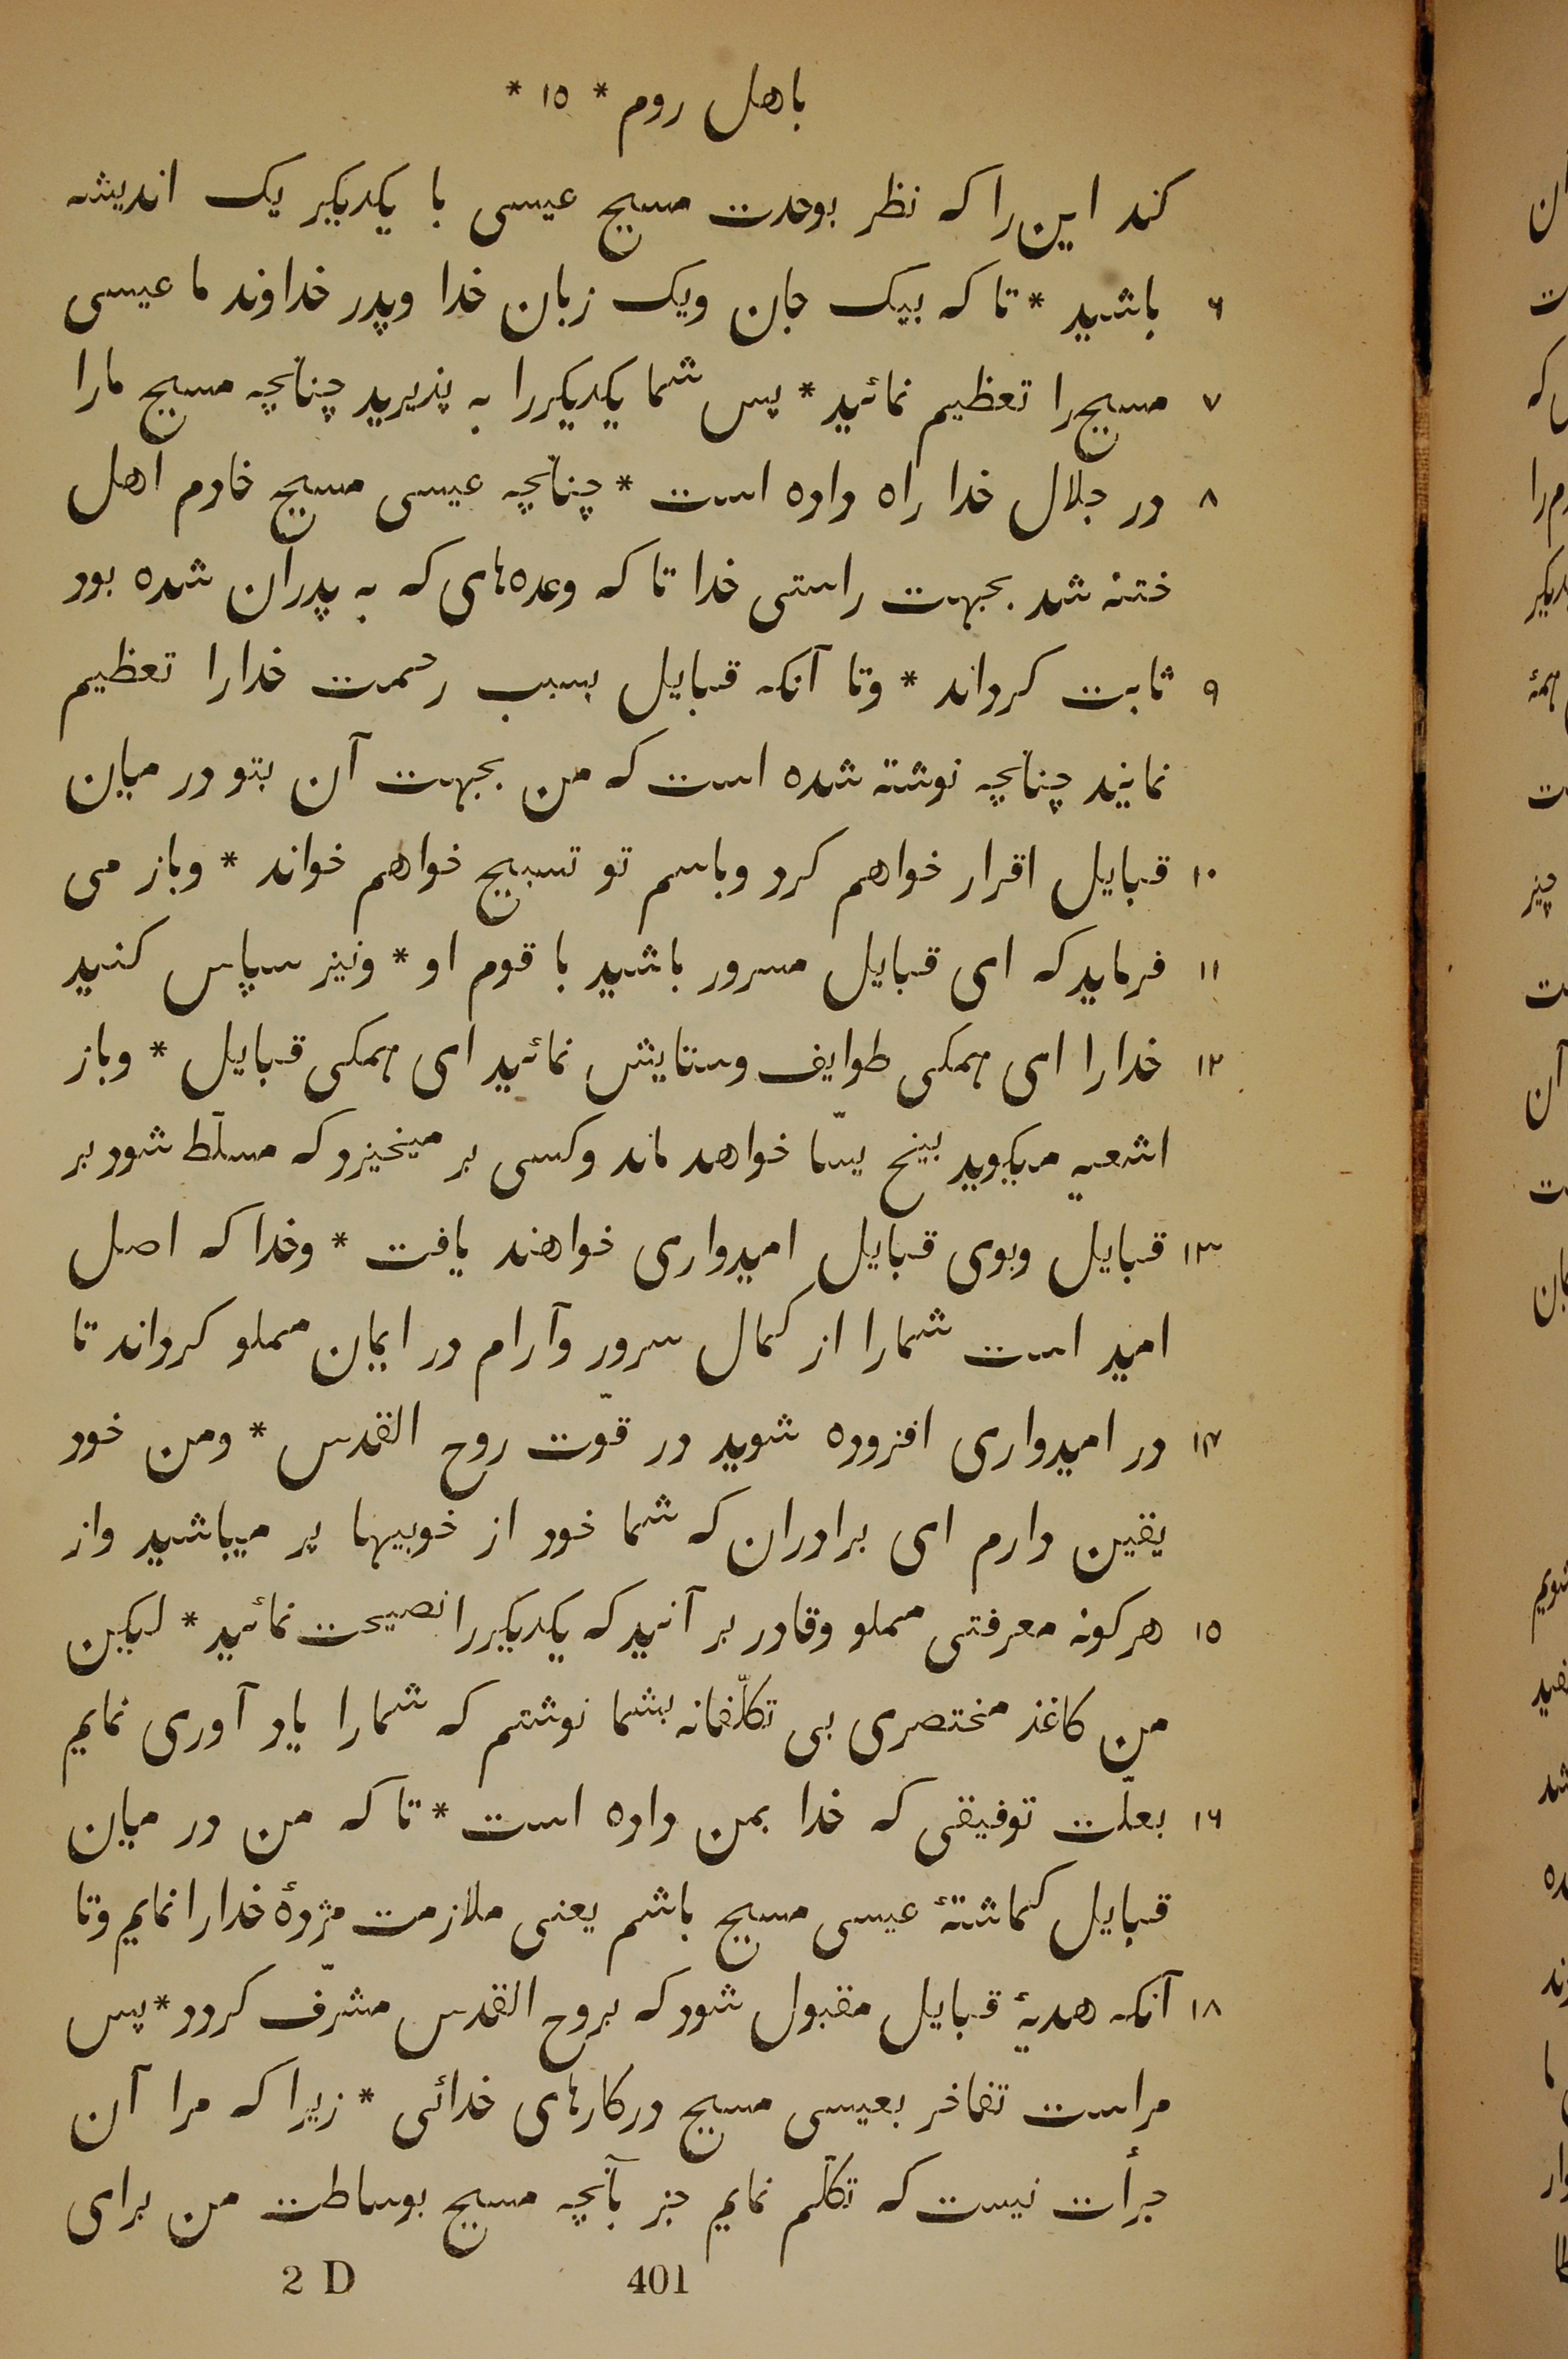 باهل روم * ١٥ *
کند این را که نظر بوحدت مسیح عیسی با یکدیکیر یک اندیشه
٦ باشید * تا که بیک جان ویک زبان خدا وپدر خداوند ما عیسی
٧ مسیح را تعظیم نمائید * پس شما یکدیکیررا به پذیرید چنانچه مسیح مارا
٨ در جلال خدا راه داده است * چنانچه عیسی مسیح خادم اهل
ختنه شد بجهت راستی خدا تا که وعده‌های که به پدران شده بود
٩ ثابت کرداند * وتا آنکه قبایل بسبب رحمت خدارا تعظیم
نمایند چنانچه نوشته شده است که من بجهت آن بتو در میان
١٠ قبایل اقرار خواهم کرد وباسم تو تسبیح خواهم خواند * وباز می
١١ فرماید که ای قبایل مسرور باشید با قوم او * ونیز سپاس کنید
١٢ خدارا ای همکی طوایف وستایش نمائید ای همکی قبایل * وباز
اشعیه میکوید بیخ یسّا خواهد ماند وکسی بر میخیزد که مسلّط شود بر
١٣ قبایل وبوی قبایل امیدواری خواهند یافت * وخدا که اصل
امید است شمارا از کمال سرور وآرام در ایمان مملو کرداند تا
١۴ در امیدواری افزوده شوید در قوّت روح القدس * ومن خود
یقین دارم ای برادران که شما خود از خوبیها پر میباشید واز
١٥ هرکونه معرفتی مملو وقادر بر آنید که یکدیکیررا نصیحت نمائید * لیکین
من کاغذ مختصری بی تکلّفانه بشما نوشتم که شمارا یاد آوری نمایم
١٦ بعلّت توفیقی که خدا بمن داده است * تا که من در میان
قبایل کماشتهٔ عیسی مسیح باشم یعنی ملازمت مژدهٔ خدارا نمایم وتا
١٨ آنکه هدیهٔ قبایل مقبول شود که بروح القدس مشرّف کردد * پس
مراست تفاخر بعیسی مسیح درکارهای خدائی * زیرا که مرا آن
جرأت نیست که تکلّم نمایم جز بآنچه مسیح بوساطت من برای
2 D 401